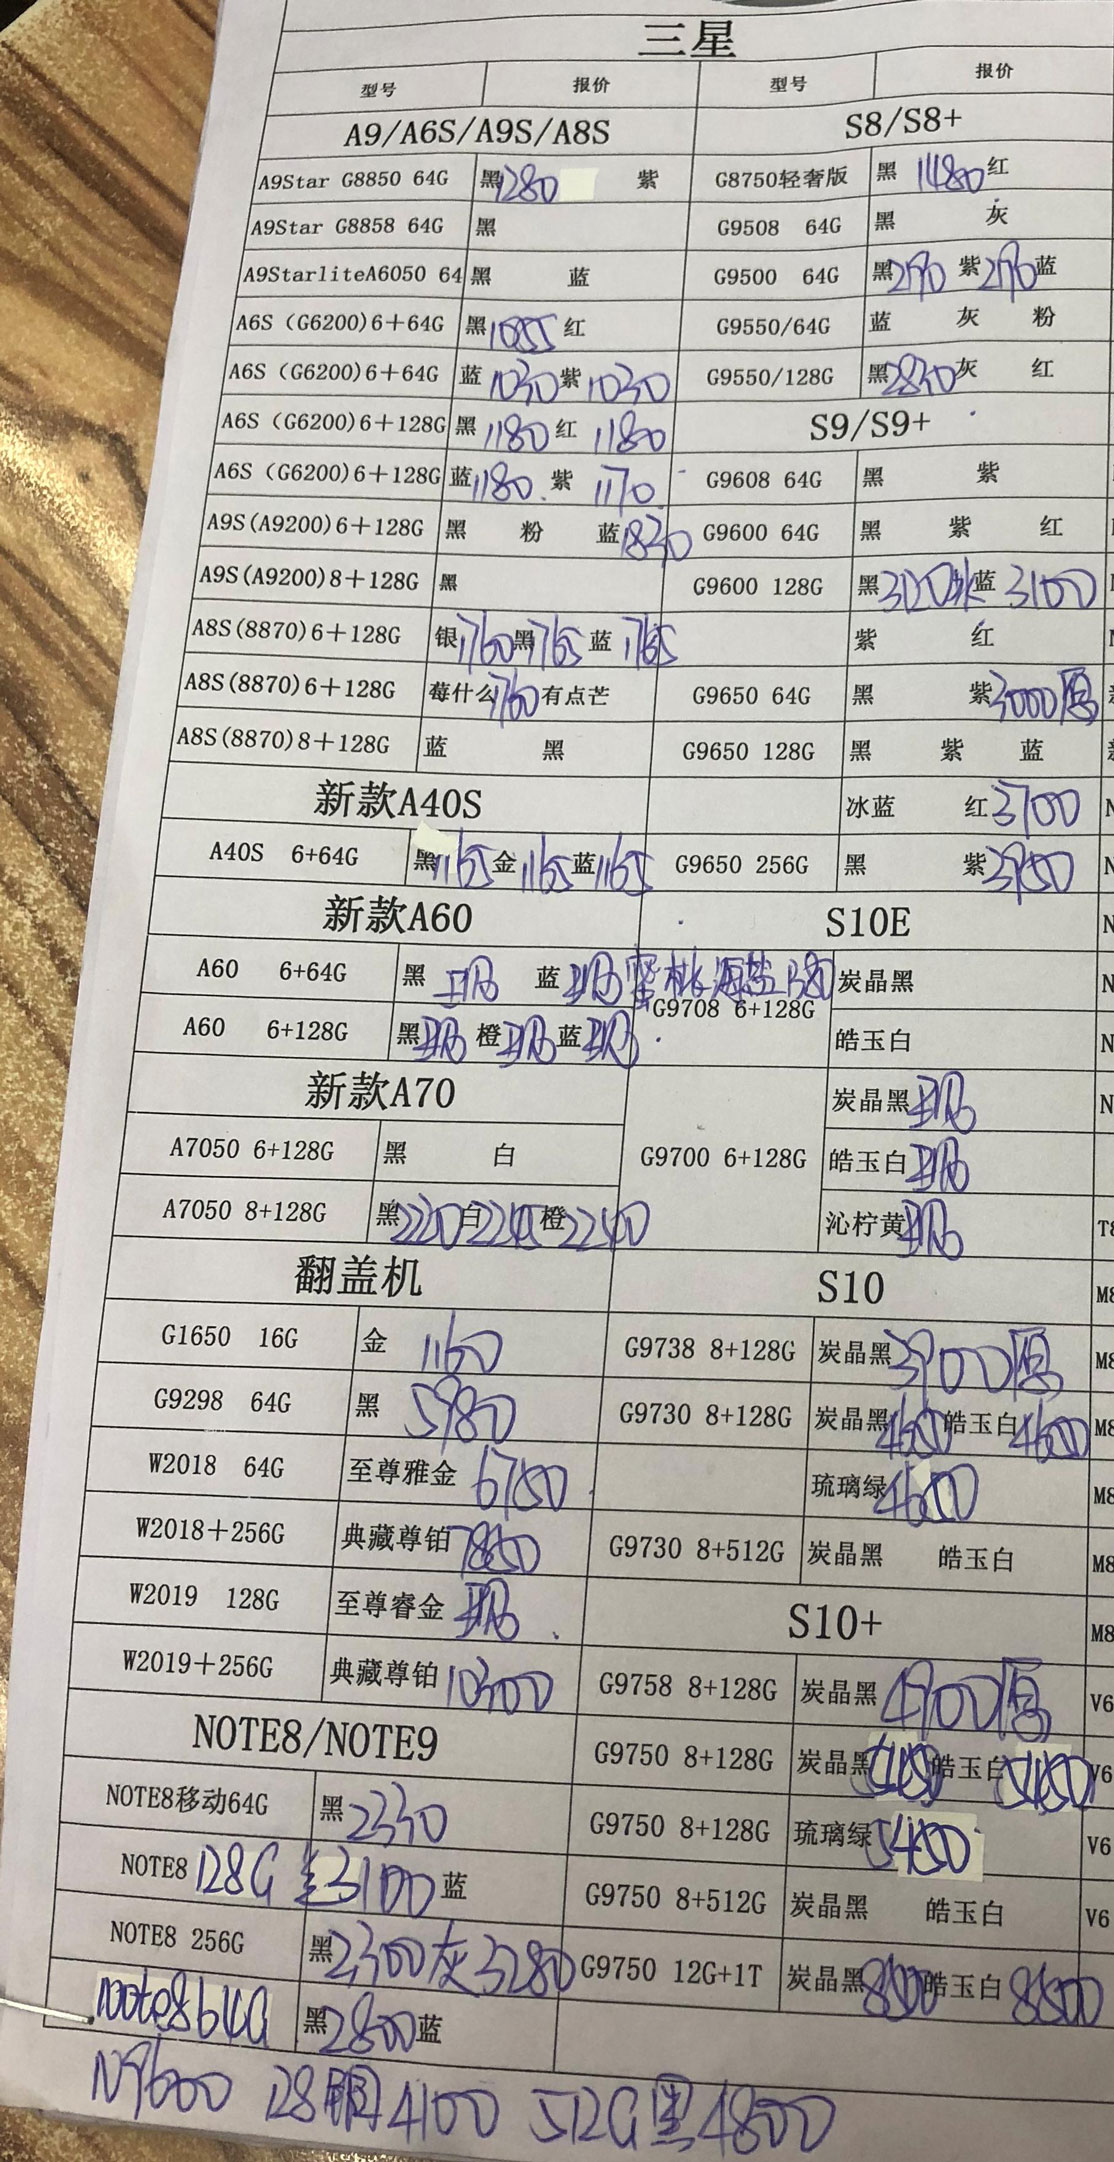 三星
型号 报价 型号 报价
A9/A6S/A9S/A8S S8/S8+
A9Star G8850 64G 黑1280 紫 G8750轻奢版 黑 1480 红
A9Star G8858 64G 黑 G9508 64G 黑 灰
A9StarliteA6050 64 黑 蓝 G9500 64G 黑 紫 蓝
A6S (G6200)6+64G 黑1055 红 G9550/64G 蓝 灰 粉
A6S (G6200)6+64G 蓝 1030 紫 1030 G9550/128G 黑2830 灰 红
A6S (G6200)6+128G 黑 1180 红 1180 S9/S9+
A6S (G6200)6+128G 蓝 1180 紫 1170 G9608 64G 黑 紫
A9S(A9200)6+128G 黑 粉 蓝1830 G9600 64G 黑 紫 红
A9S(A9200)8+128G 黑 G9600 128G 黑3120 蓝 3100
A8S(8870)6+128G 银1760 黑1765 蓝 1765 紫 红
A8S(8870)6+128G 莓什么1760 有点芒 G9650 64G 黑 紫3000原
A8S(8870)8+128G 蓝 黑 G9650 128G 黑 紫 蓝
新款A40S 冰蓝 红3700
A40S 6+64G 黑1165 金1165 蓝1165 G9650 256G 黑 紫3950
新款A60 S10E
A60 6+64G 黑 现 蓝 现 蜜桃海盐 G9708 6+128G 炭晶黑
A60 6+128G 黑现 橙现 蓝现 皓玉白
新款A70 炭晶黑现
A7050 6+128G 黑 白 G9700 6+128G 皓玉白现
A7050 8+128G 黑2220 白2245 橙2240 沁柠黄现
翻盖机 S10
G1650 16G 金 1160 G9738 8+128G 炭晶黑3900原
G9298 64G 黑 5980 G9730 8+128G 炭晶黑4600 皓玉白4600
W2018 64G 至尊雅金 6750 琉璃绿4600
W2018+256G 典藏尊铂 7850 G9730 8+512G 炭晶黑 皓玉白
W2019 128G 至尊睿金 现 S10+
W2019+256G 典藏尊铂 10300 G9758 8+128G 炭晶黑 4900原
NOTE8/NOTE9 G9750 8+128G 炭晶黑5450 皓玉白5450
NOTE8移动64G 黑2330 G9750 8+128G 琉璃绿5450
NOTE8 128G 3100 蓝 G9750 8+512G 炭晶黑 皓玉白
NOTE8 256G 黑2300灰3280 G9750 12G+1T 炭晶黑8500 皓玉白 8500
note8 64G 黑2800 蓝
N9600 128铜4100 512G黑4800